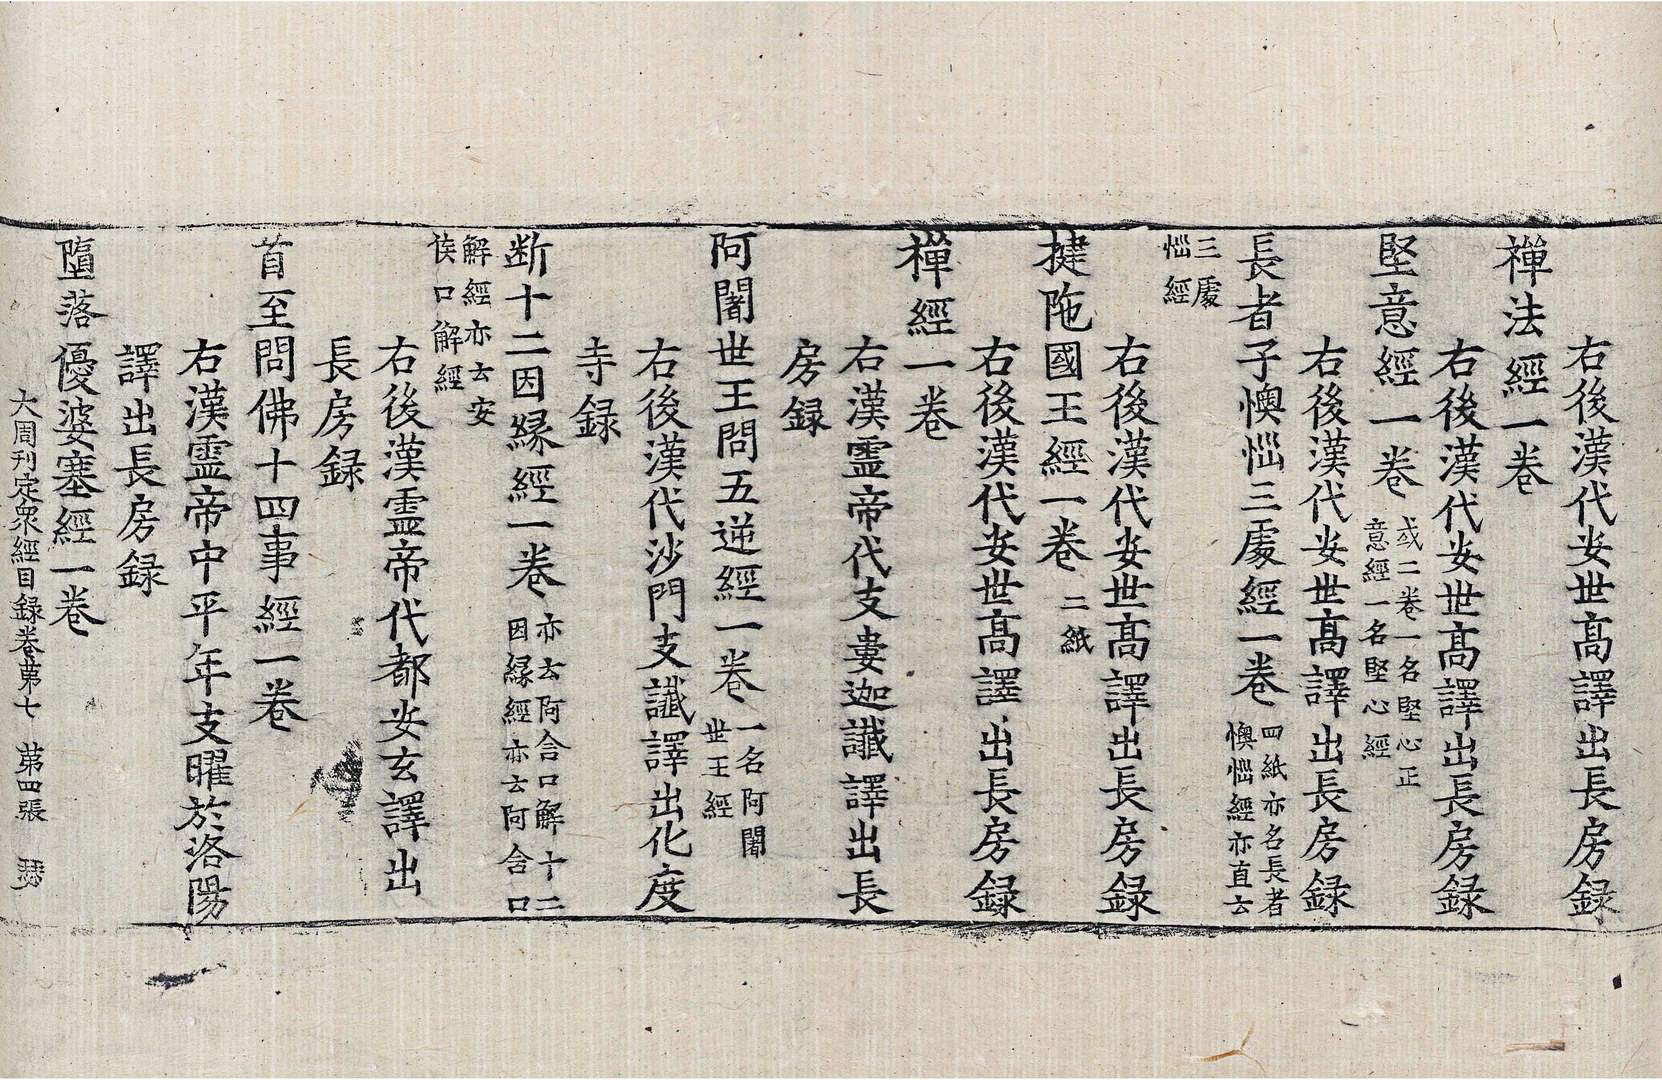 右後漢代安世髙譯出長房録
禪法經一卷
右後漢代安世髙譯出長房録
堅意經一卷 或二卷一名堅心正
意經一名堅心經
右後漢代安世髙譯出長房録
長者子懊惱三處經一卷 四紙亦名長者
懊惱經亦直云
三處
惱經
右後漢代安世髙譯出長房録
揵陁國王經一卷 二紙
右後漢代安世髙譯出長房録
禪經一卷
右漢靈帝代支婁迦讖譯出長
房録
阿闍世王問五逆經一卷 一名阿闍
世王經
右後漢代沙門支讖譯出化度
寺録
断十二因縁經一卷 亦云阿含口解十二
因縁經亦云阿含口
解經亦云安
侯口解經
右後漢靈帝代都安玄譯出
長房録
首至問佛十四事經一卷
右漢靈帝中平年支曜於洛陽
譯出長房録
墮落優婆塞經一卷
大周刊定衆經目録卷第七 第四張 瑟